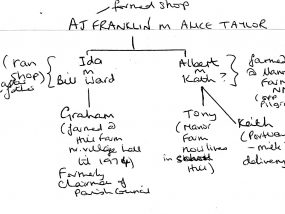 farmed shop
AJ FRANKLIN M ALICE TAYLOR
(ran shop)
Ida
m
Bill Ward
Albert
m
Kath?
farmed @
Farm
Graham
(farmed @
this farm
nr. village hall
til 1974)
Formerly
Chairman of
Parish Council
Tony
(Manor
Farm
now lives
in
Hill)
Keith
milk
delivery